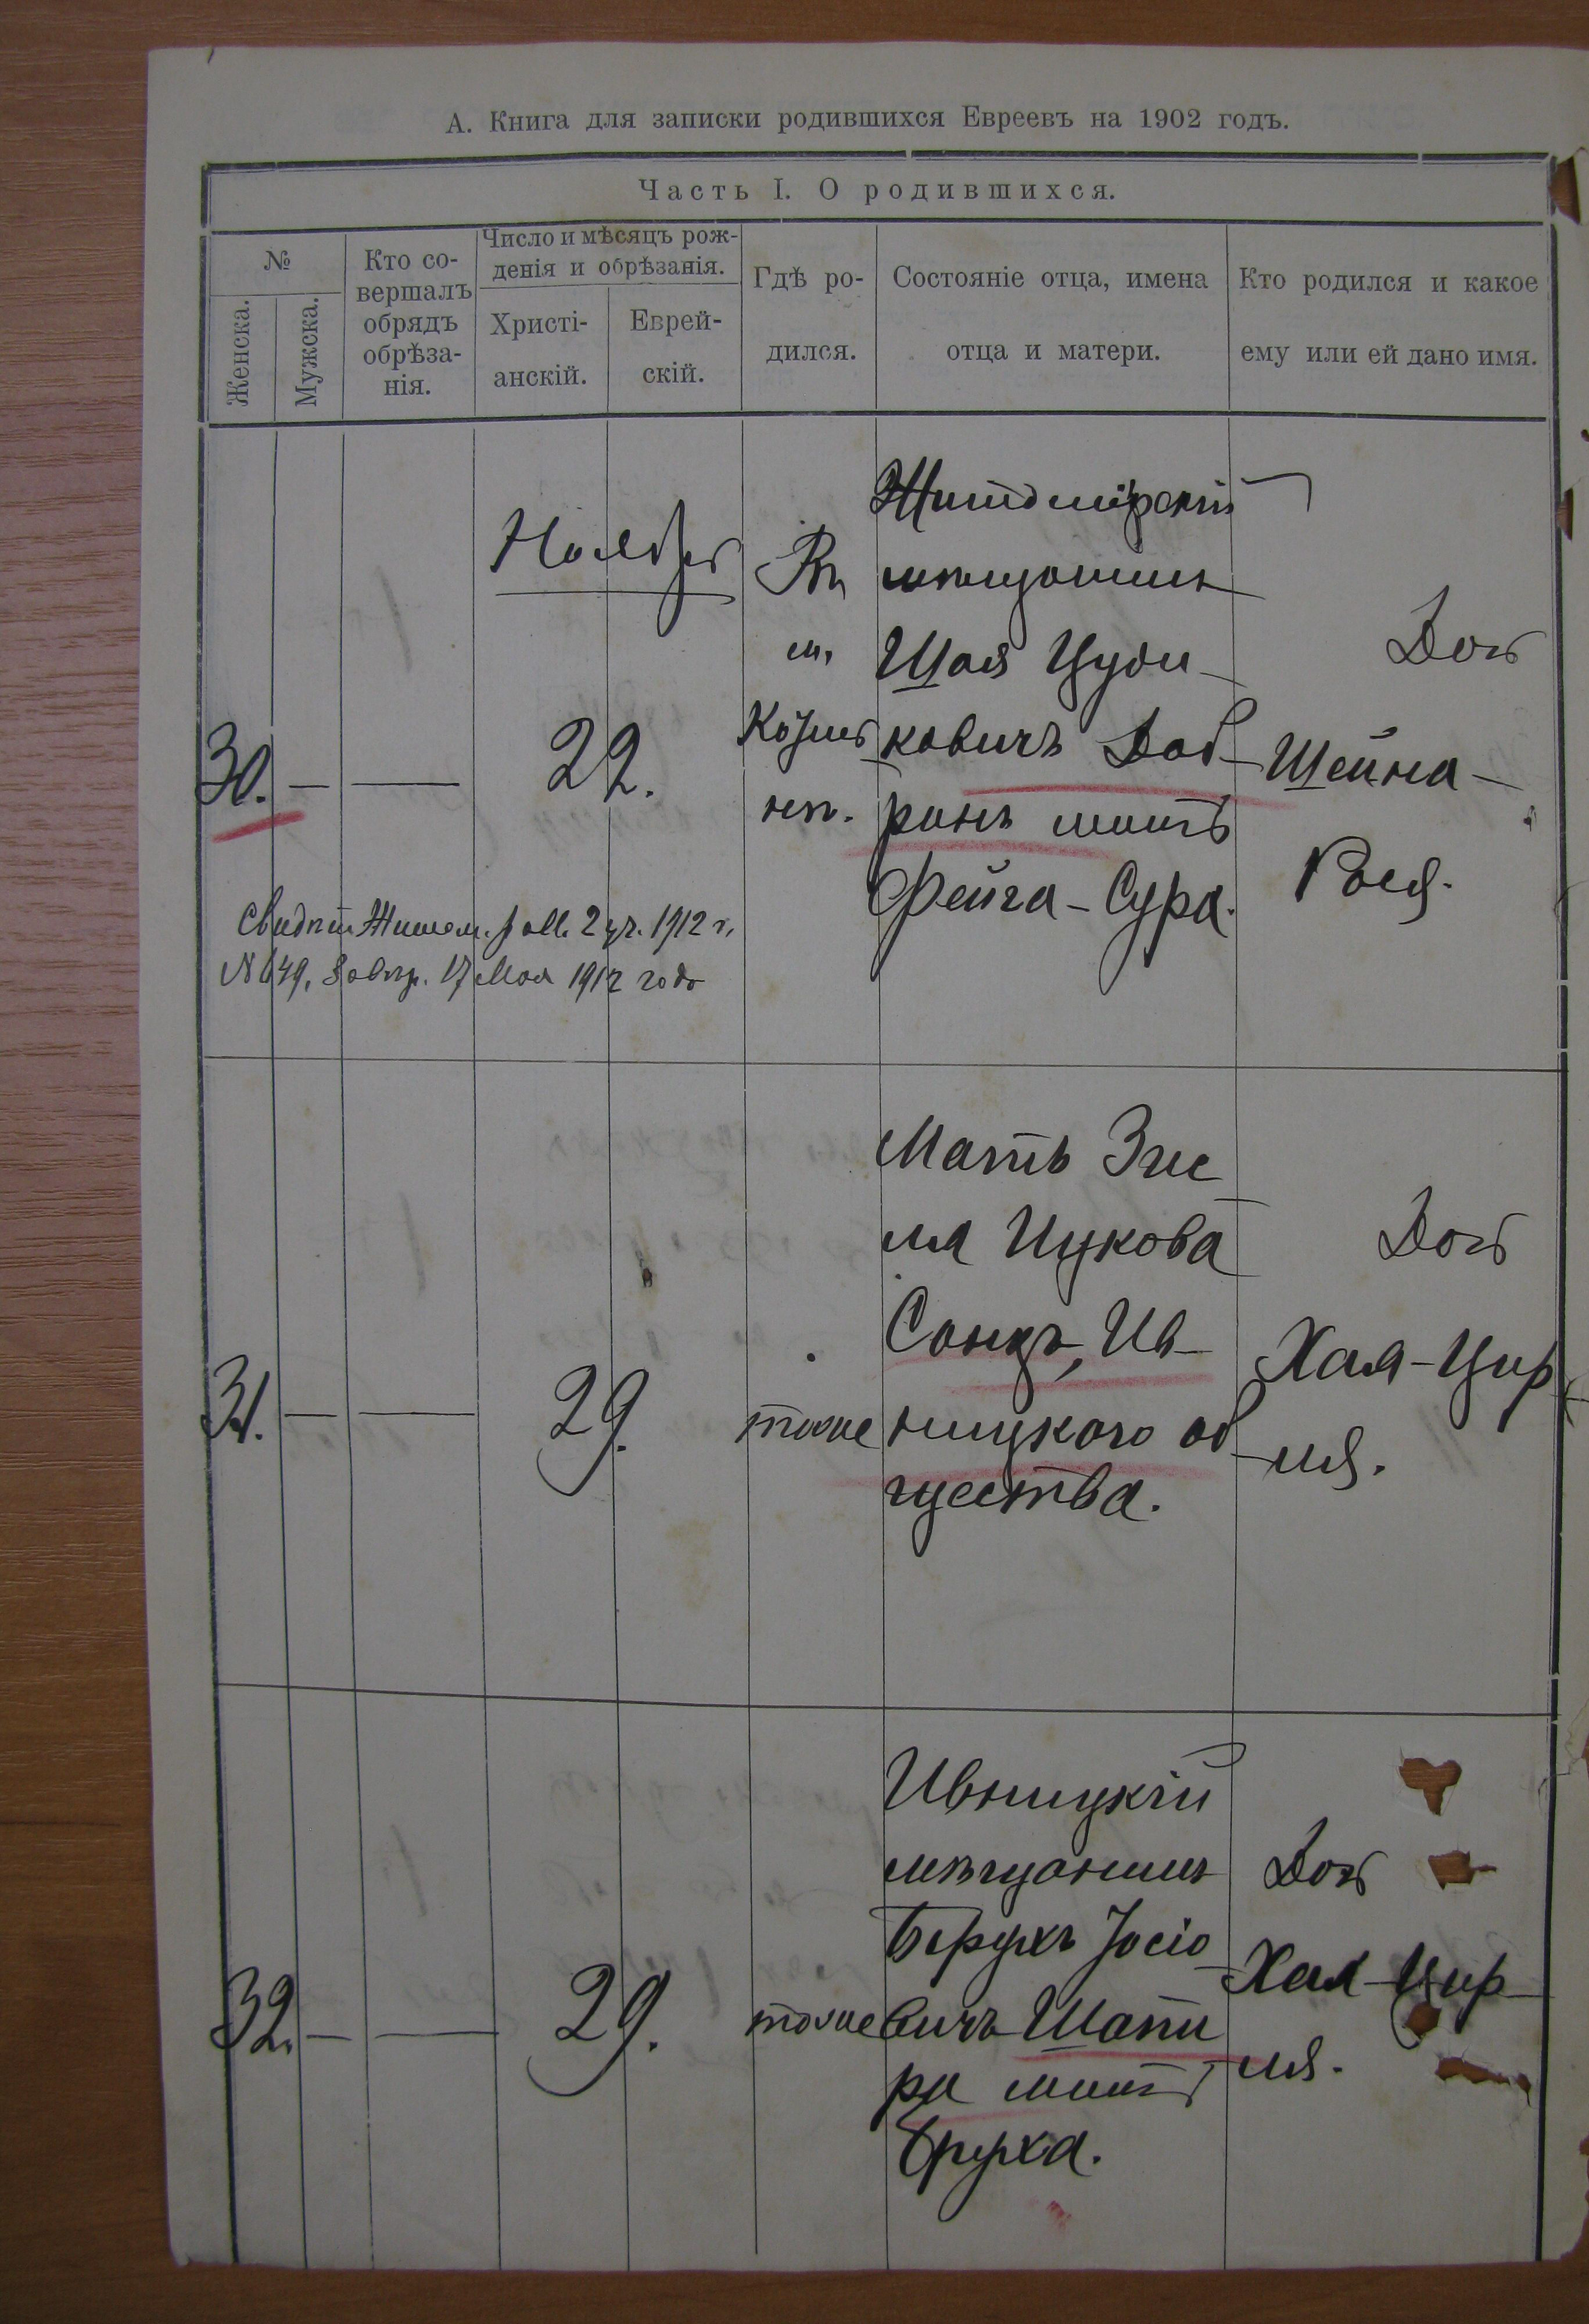 А. Книга для записки родившихся Евреевъ на 1902 годъ.
Часть I. О родившихся.
№
Женска.
Мужска.
Кто со-
вершалъ
обрядъ
обрѣза-
нія.
Число и мѣсяцъ рож-
денія и обрѣзанія.
Христі-
анскій.
Еврей-
скій.
Гдѣ ро-
дился.
Состояніе отца, имена
отца и матери.
Кто родился и какое
ему или ей дано имя.
30. — —
Ноября
22.
Въ
м.
нѣ.
Житомірскій
мѣщанинъ
Шая Цуди-
ковичъ Доб-
ринъ мать
Фейга-Сура.
Дочь
Шейна-
Рося.
Свидѣт. Житом. 2 уч. 1912 г.
№ 649, 17 Мая 1912 года
31. — —
29.
тоже
Мать Зис
ля Ицкова
Сонцъ, Ив-
ницкаго об-
щества.
Дочь
Хая-Цир
ля.
32. — —
29.
тоже
Ивницкій
мѣщанинъ
Берухъ Іосіо-
вичъ Шапи
ра мать
Бруха.
Дочь
Хая-Цир-
ля.